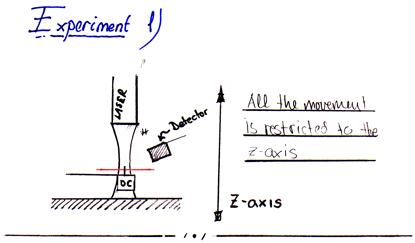 Experiment 1)
LASER
Detector
DC
All the movement
is restricted to the
z-axis
Z-axis